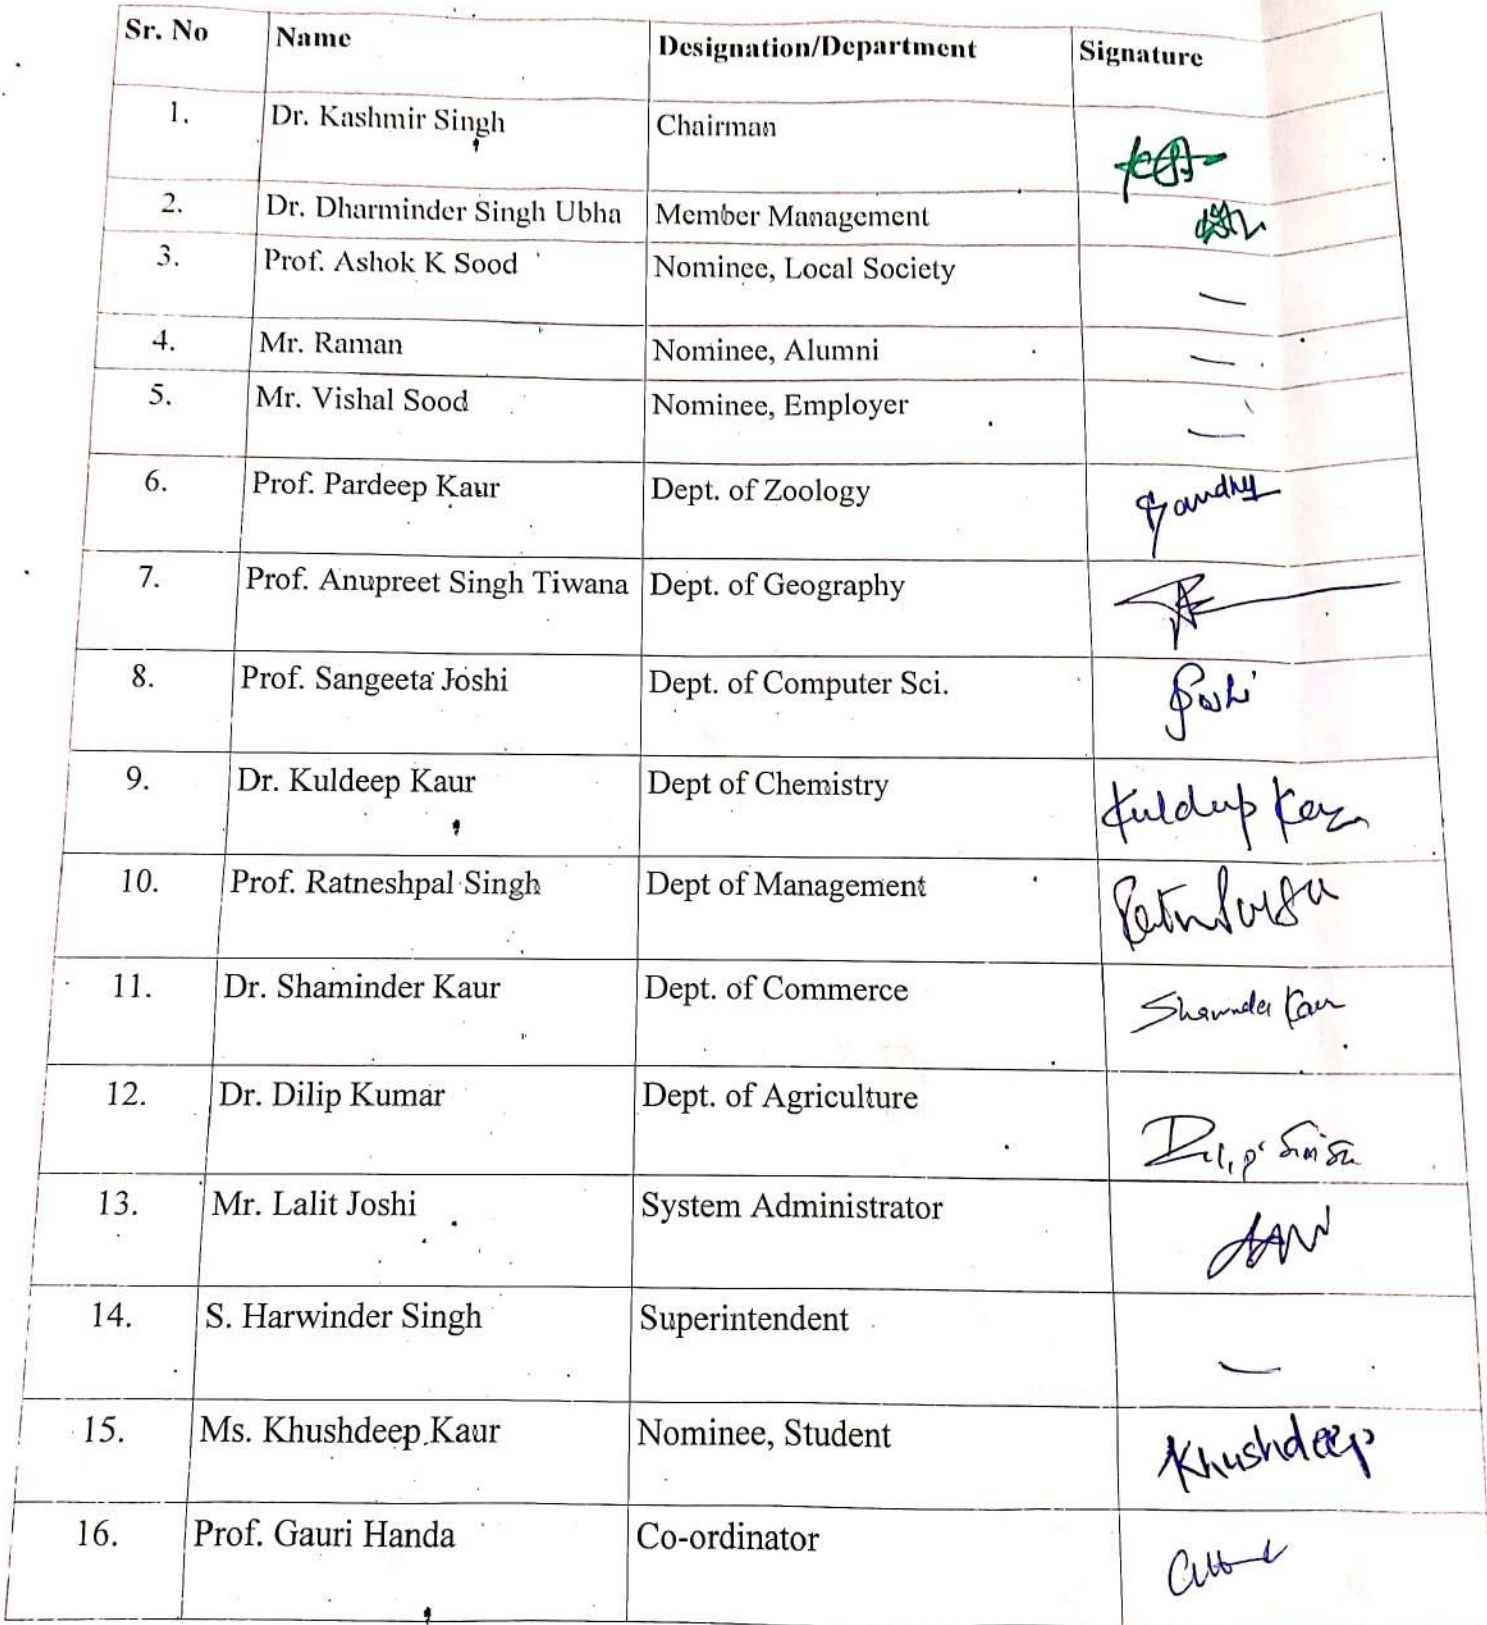 Sr. No Name Designation/Department Signature
1. Dr. Kashmir Singh Chairman
2. Dr. Dharminder Singh Ubha Member Management
3. Prof. Ashok K Sood Nominee, Local Society —
4. Mr. Raman Nominee, Alumni —
5. Mr. Vishal Sood Nominee, Employer —
6. Prof. Pardeep Kaur Dept. of Zoology
7. Prof. Anupreet Singh Tiwana Dept. of Geography
8. Prof. Sangeeta Joshi Dept. of Computer Sci.
9. Dr. Kuldeep Kaur Dept of Chemistry Kuldeep Kaur
10. Prof. Ratneshpal Singh Dept of Management
11. Dr. Shaminder Kaur Dept. of Commerce Shaminder Kaur
12. Dr. Dilip Kumar Dept. of Agriculture Dilip
13. Mr. Lalit Joshi System Administrator
14. S. Harwinder Singh Superintendent —
15. Ms. Khushdeep Kaur Nominee, Student Khushdeep
16. Prof. Gauri Handa Co-ordinator